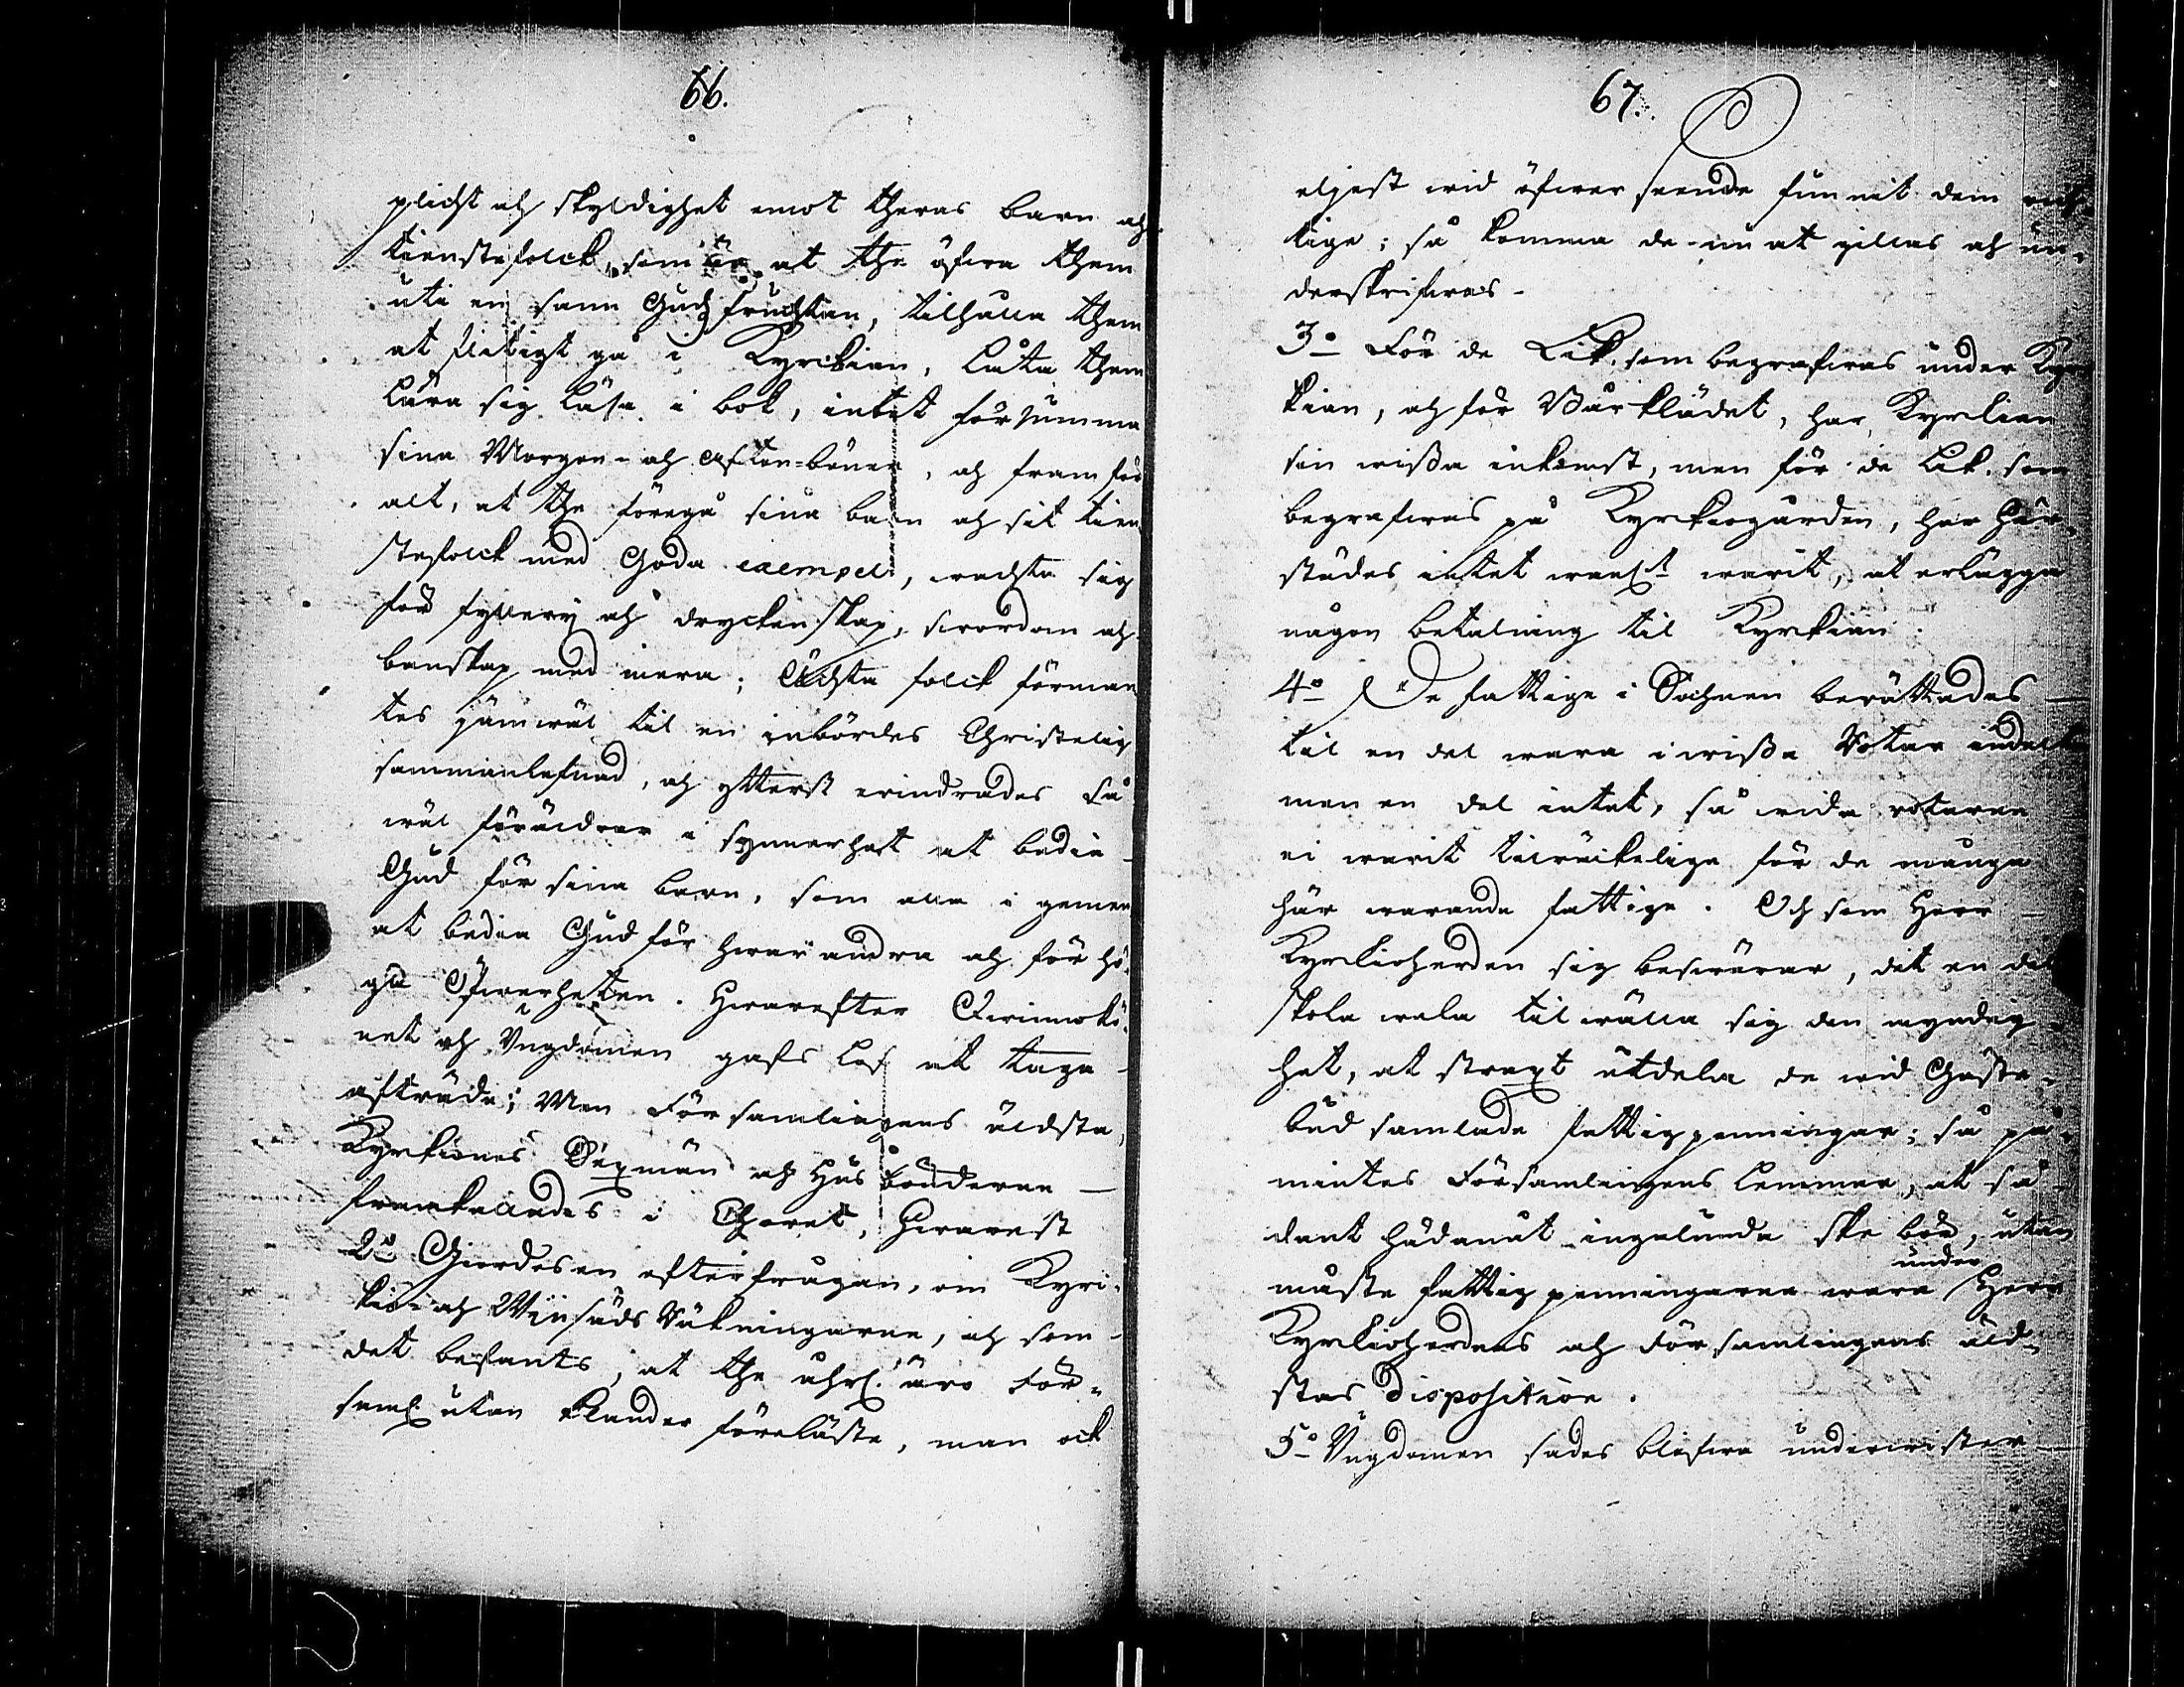 66.
plicht och skyldighet emot theras barn och
tienstefolck, som är, at the öfwa them
uti en sann Gudzfruchtan, tilhålla them
at flitigt gå i Kyrckian, låta them
lära sig läsa i bok, intet försumma
sina Morgon- och Afton-böner, och framför
alt, at the föregå sina barn och sit tien-
stefolck med Goda exempel, wachta sig
för fylleri och dryckenskap, swordom och
banskap med mera; Ächta folck förman-
tes jämwäl til en inbördes Christelig
sammanlefnad, och ytterst erindrades så
wäl föräldrar i synnerhet at bedia
Gud för sina barn, som alla i gemen
at bedia Gud för hwarandra och för hö-
ga Öfwerheten. Hwarefter Qwinnokö-
net och Ungdomen gafs lof at taga
afträde; Men Församlingens äldsta,
Kyrkiones Sexmän och Husbönderne
framkallades i Choret, Hwarest
2o Giordes en efterfrågan, om Kyr-
kio- och Wiinsäds Räkningarne, och som
det befants, at the åhrl. äro För-
saml. utan klander föreläste, man ock
67.
eljest wid öfwerseende funnit dem rich-
tige; så komma de nu at gillas och un-
derskrifwas.
3o För de Lik som begrafwas under Kyr-
kian, och för Bårklädet, har Kyrkian
sin wissa inkomst, men för de Lik som
begrafwas på Kyrkiogården, har här-
städes intet warit, at erlägga
någon betalning til Kyrkian.
4o De fattige i Sochnen berättades
til en del wara i wissa Rotar indelte
men en del intet, så wida rotarne
ei warit tilräckelige för de många
här warande fattige. Och som Herr
Kyrkioherden sig beswärar, det en del
skola wela tilwälla sig den myndig-
het, at straxt utdela de wid Gäste-
bud samlade fattigpenningar; så på-
mintes Församlingens Lemmar, at så-
dant hädanåt ingalunda ske bör, utan
måste fattigpenningarne wara under Herr
Kyrkioherdens och Församlingens äld-
stas disposition.
5o Ungdomen sades blifwa underwister